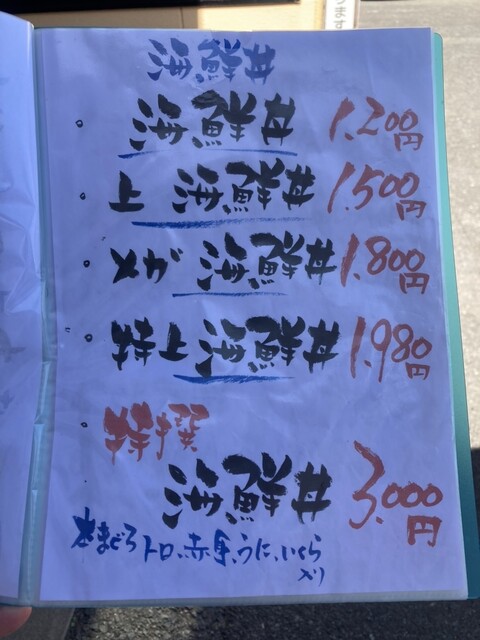 海鮮丼
・海鮮丼 1.200円
・上 海鮮丼 1.500円
・メガ 海鮮丼 1.800円
・特上海鮮丼 1.980円
・特撰
海鮮丼 3.000円
本まぐろトロ、赤身、うに、いくら
入り